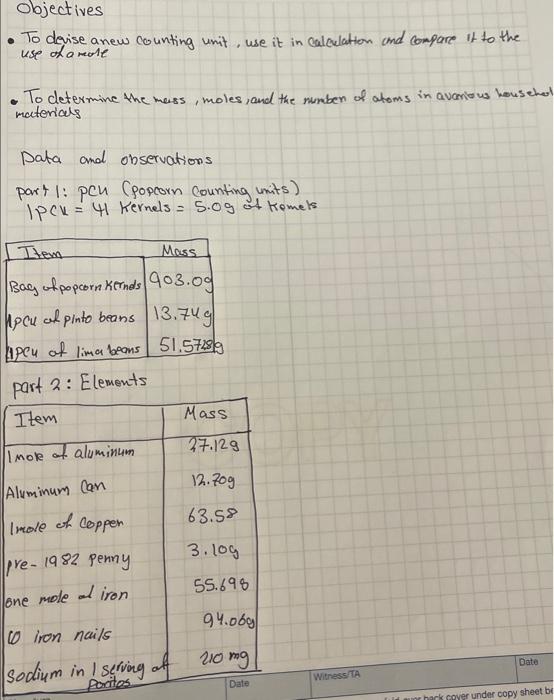 Objectives
• To devise a new counting unit, use it in calculation and compare it to the
use of a mole
• To determine the mass, moles, and the number of atoms in a various househol
materials
Data and observations
part 1: pcu (popcorn counting units)
1 pcu = 41 kernels = 5.0g of kernels
Item Mass
Bag of popcorn kernels 903.0g
1pcu of pinto beans 13.74g
1pcu of lima beans 51.5728g
part 2: Elements
Item Mass
1 mole of aluminum 27.12g
Aluminum Can 12.70g
1 mole of copper 63.58
pre-1982 penny 3.10g
one mole of iron 55.698
10 iron nails 94.06g
Sodium in 1 serving of 210 mg
Doritos
Date
Witness/TA
Date
back cover under copy sheet be